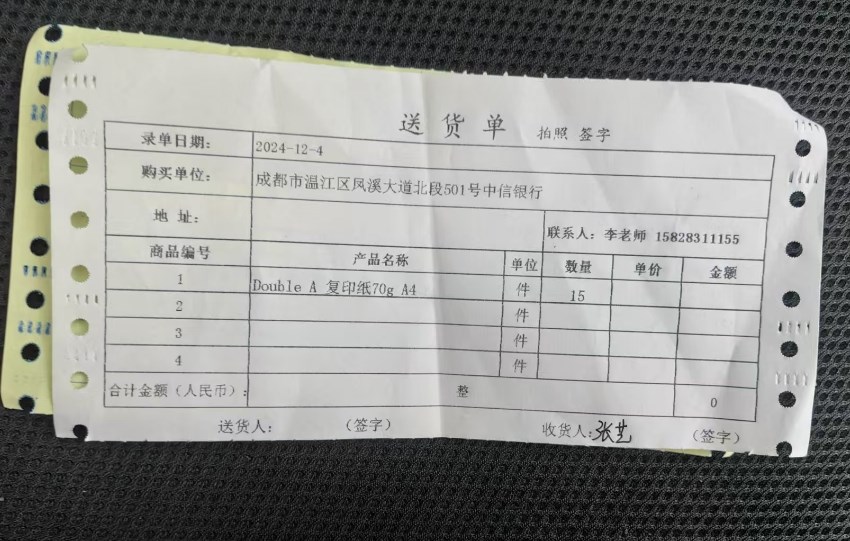 送货单 拍照 签字
录单日期: 2024-12-4
购买单位: 成都市温江区凤溪大道北段501号中信银行
地 址: 联系人: 李老师 15828311155
商品编号 产品名称 单位 数量 单价 金额
1 Double A 复印纸70g A4 件 15
2 件
3 件
4 件
合计金额(人民币): 整 0
送货人: (签字) 收货人: 张艺 (签字)